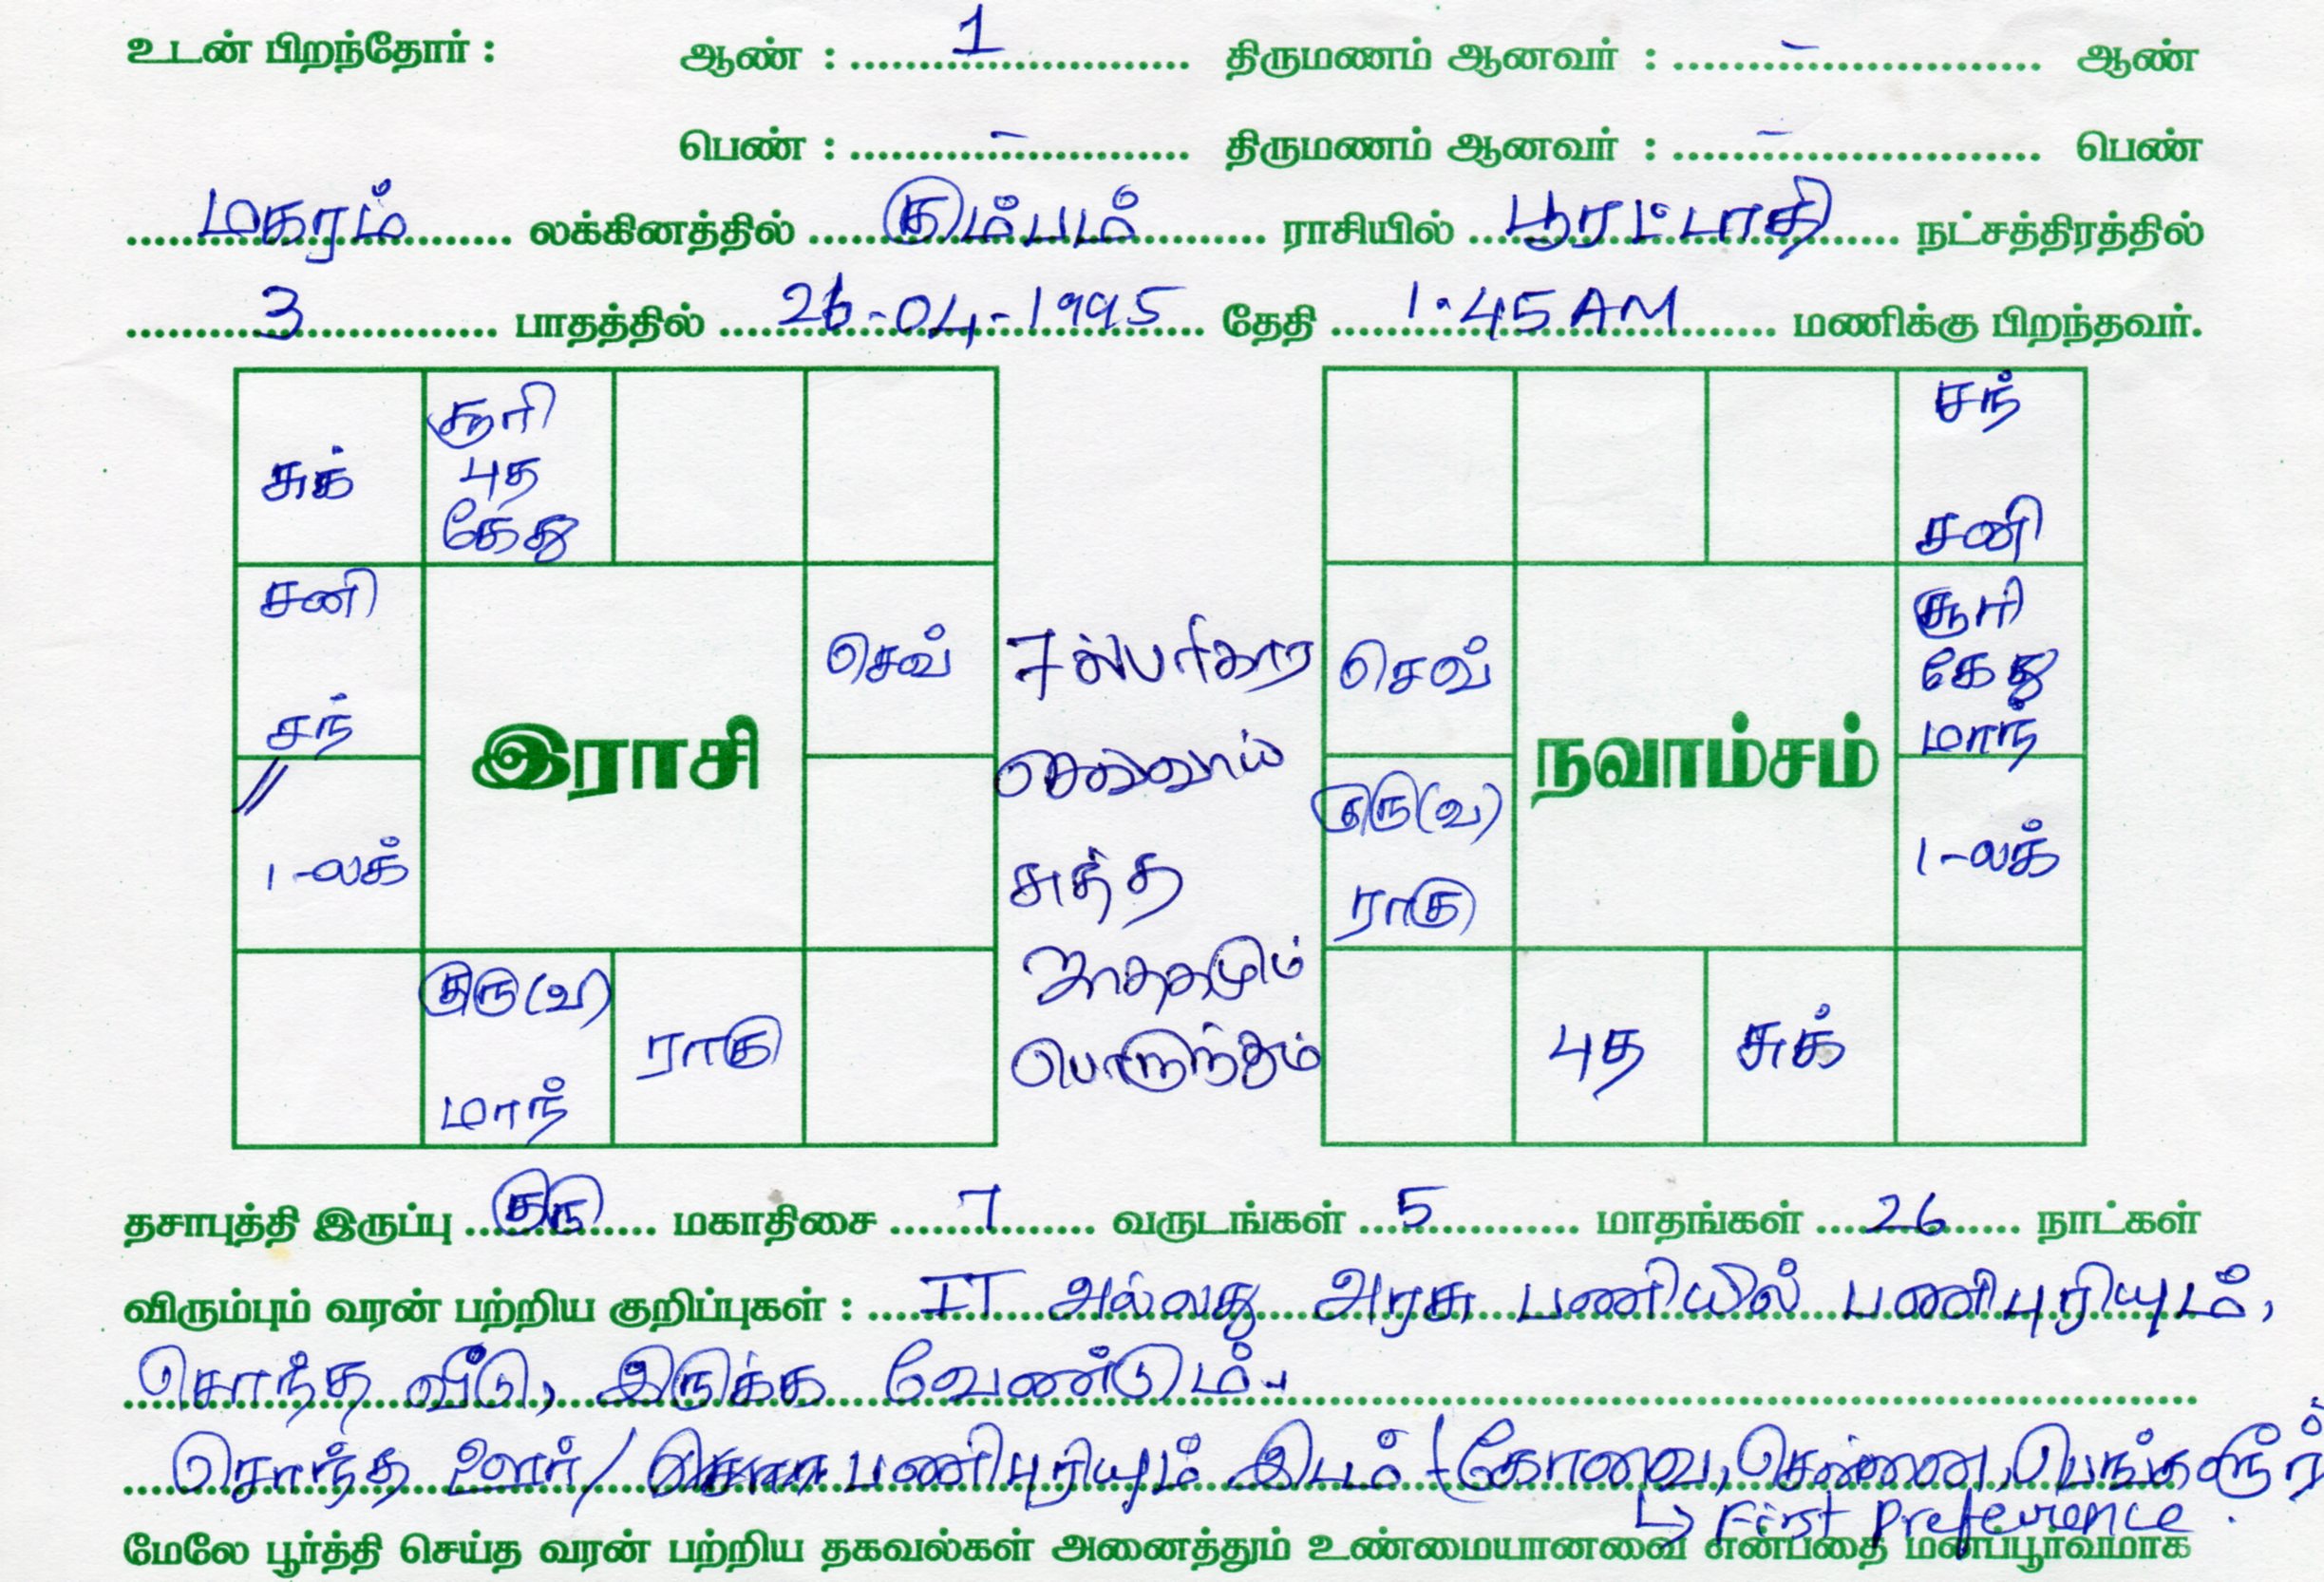 உடன் பிறந்தோர் : ஆண் : 1 திருமணம் ஆனவர் : - ஆண்
பெண் : - திருமணம் ஆனவர் : - பெண்
மகரம் லக்கினத்தில் கும்பம் ராசியில் பூரட்டாதி நட்சத்திரத்தில்
3 பாதத்தில் 26-04-1995 தேதி 1.45 AM மணிக்கு பிறந்தவர்.
சுக்
சூரி
புத
கேது
சனி
சந்
செவ்
இராசி
ல-லக்
குரு(வ)
மாந்
ராகு
7ல்
செவ்வாய்
சுத்த
ஜாதகமும்
பொருந்தும்
சந்
சனி
செவ்
சூரி
கேது
மாந்
நவாம்சம்
குரு(வ)
ராகு
ல-லக்
புத
சுக்
தசாபுத்தி இருப்பு குரு மகாதிசை 7 வருடங்கள் 5 மாதங்கள் 26 நாட்கள்
விரும்பும் வரன் பற்றிய குறிப்புகள் : IT அல்லது அரசு பணியில் பணிபுரியும்,
சொந்த வீடு, இருக்க வேண்டும்.
சொந்த ஊர் / பணிபுரியும் இடம் (கோவை, சென்னை, பெங்களூர்
↳ First Preference.
மேலே பூர்த்தி செய்த வரன் பற்றிய தகவல்கள் அனைத்தும் உண்மையானவை என்பதை மனப்பூர்வமாக